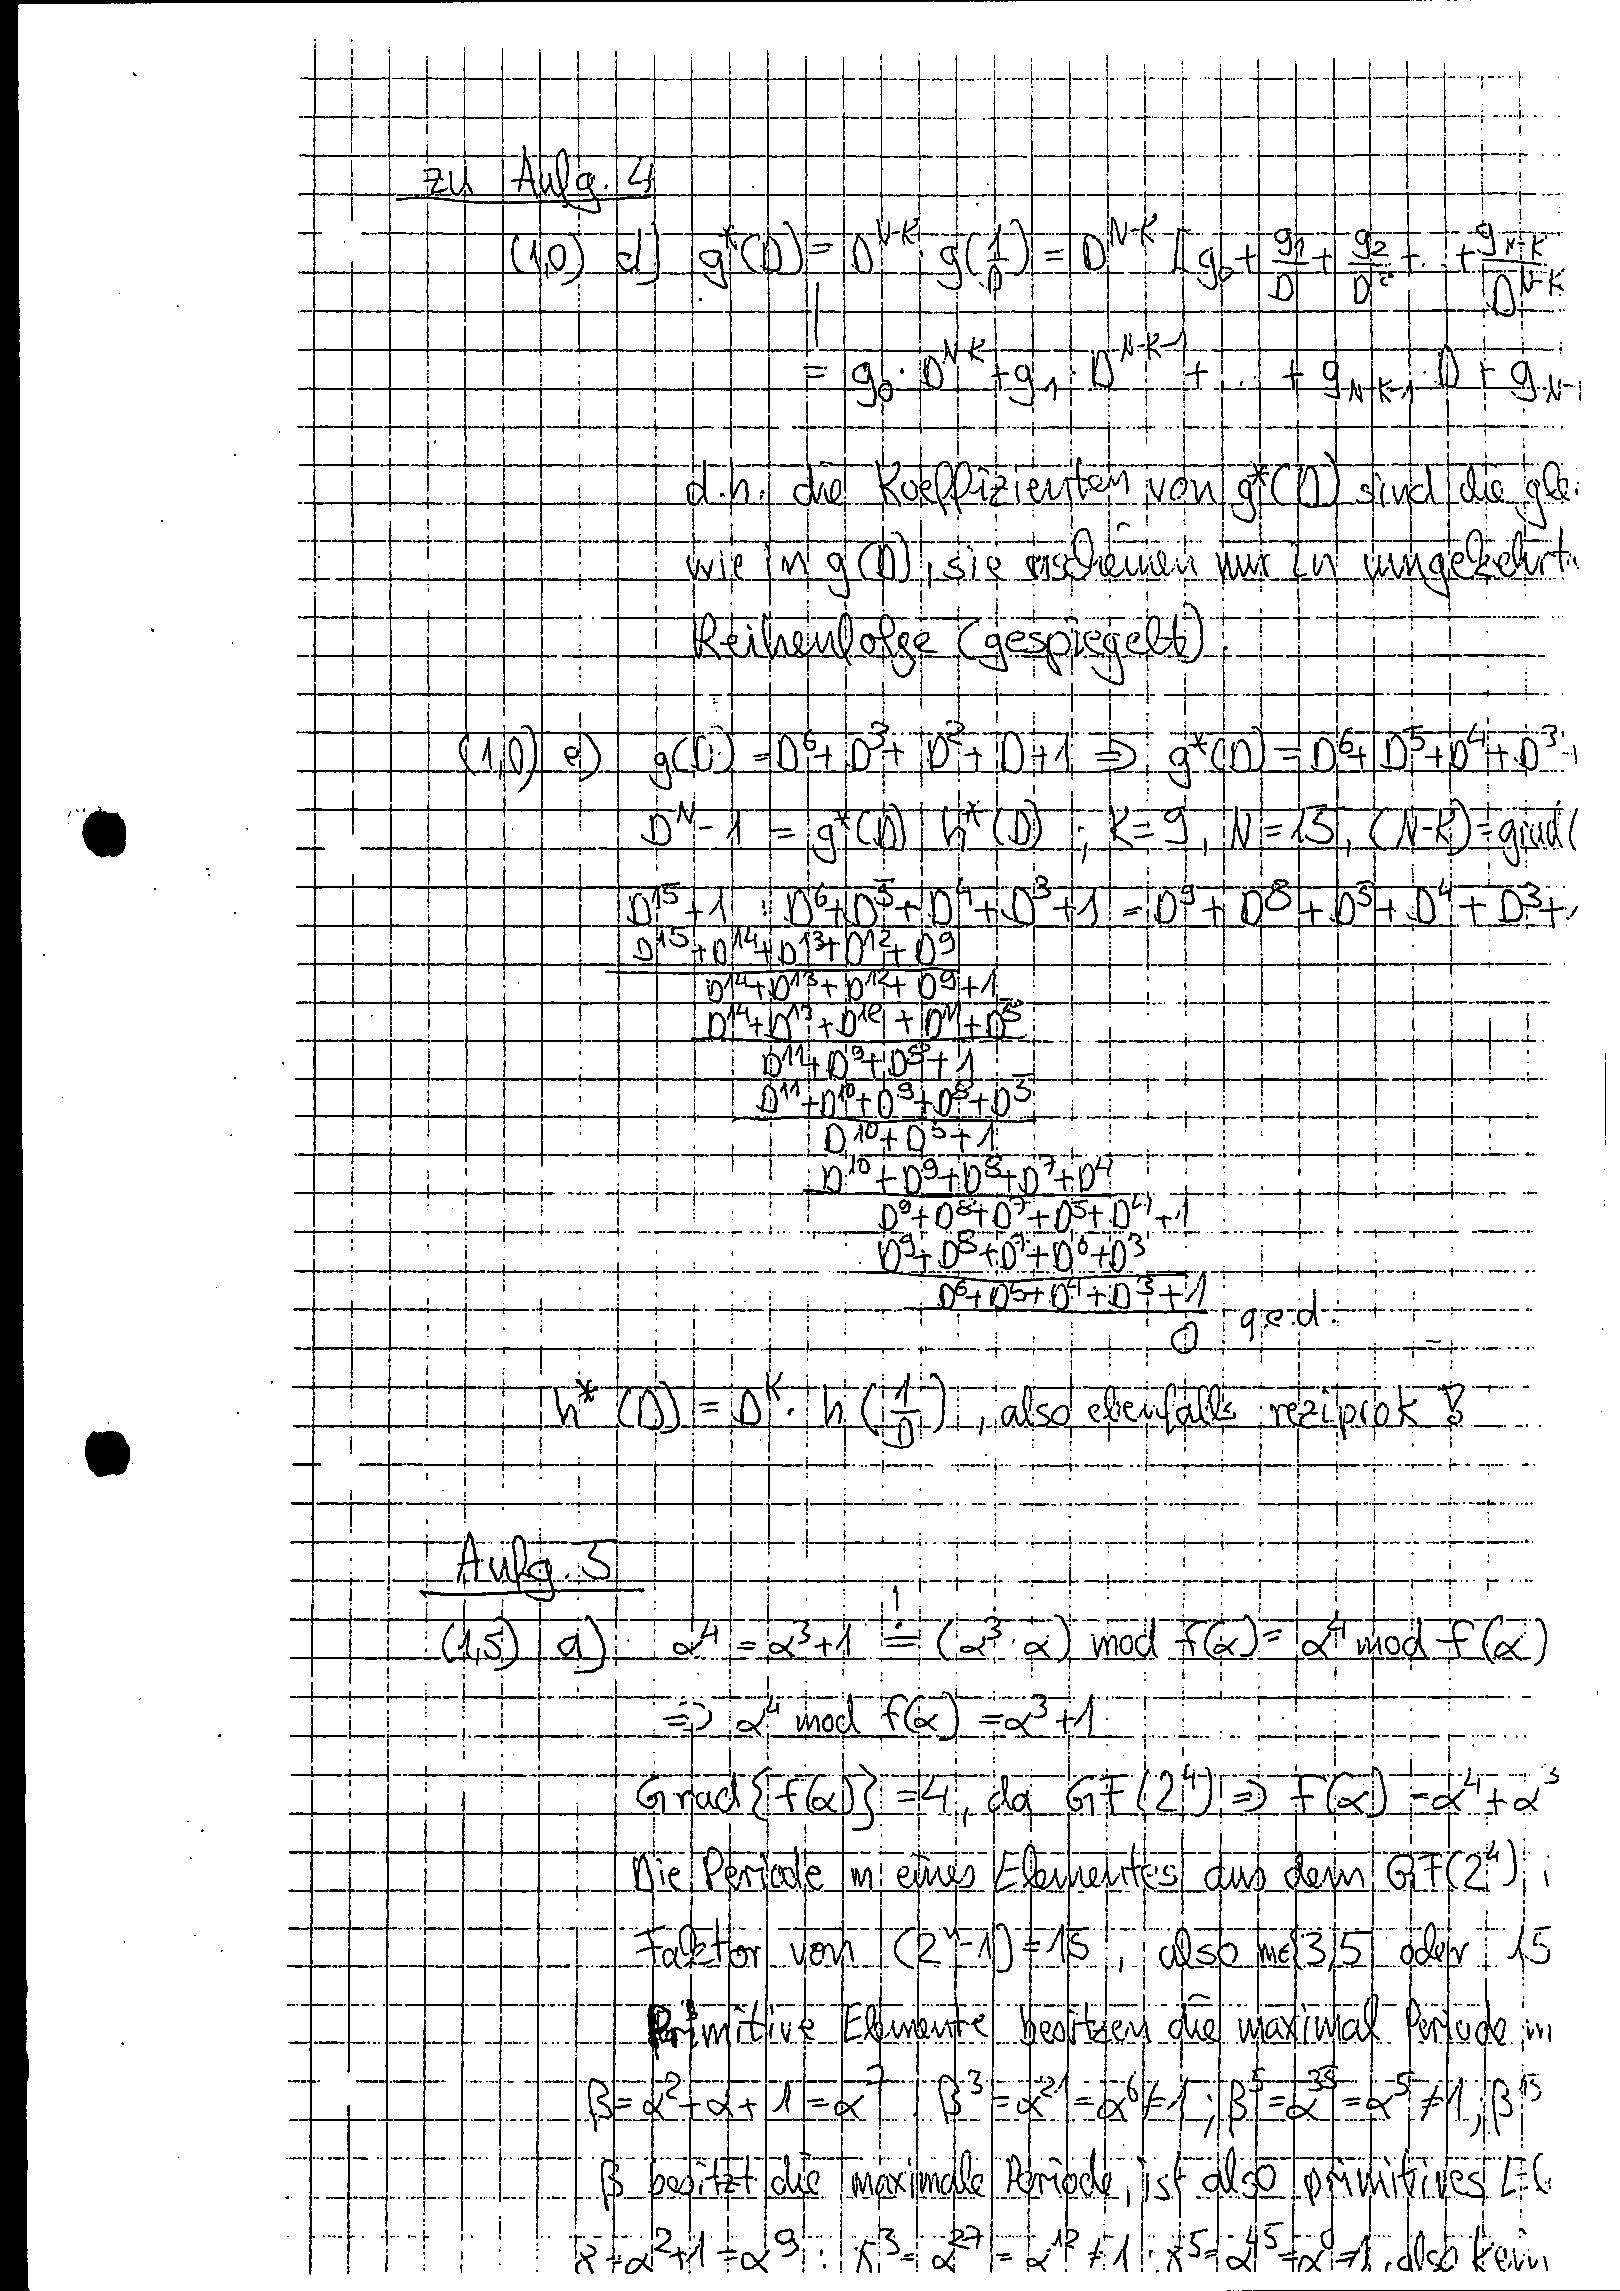 zu Aufg. 4
(1,0) d) g*(D) = D^{N-K} g(1/D) = D^{N-K} [g_0 + g_1/D + g_2/D^2 + .. + g_{N-K}/D^{N-K}
= g_0 · D^{N-K} + g_1 · D^{N-K-1} + ... + g_{N-K-1} · D + g_{N-
d.h. die Koeffizienten von g*(D) sind die gle
wie in g(D), sie erscheinen nur in umgekehrt
Reihenfolge (gespiegelt).
(1,0) e) g(D) = D^6 + D^3 + D^2 + D + 1 ⇒ g*(D) = D^6 + D^5 + D^4 + D^3 +
D^N - 1 = g*(D) h*(D) ; K=9, N=15, (N-K) = grad(
D^15 + 1 : D^6 + D^5 + D^4 + D^3 + 1 = D^9 + D^8 + D^5 + D^4 + D^3 +
D^15 + D^14 + D^13 + D^12 + D^9
D^14 + D^13 + D^12 + D^9 + 1
D^14 + D^13 + D^12 + D^11 + D^8
D^11 + D^9 + D^8 + 1
D^11 + D^10 + D^9 + D^8 + D^5
D^10 + D^5 + 1
D^10 + D^9 + D^8 + D^7 + D^4
D^9 + D^8 + D^7 + D^5 + D^4 + 1
D^9 + D^8 + D^7 + D^6 + D^3
D^6 + D^5 + D^4 + D^3 + 1
0 q.e.d.
h*(D) = D^K · h(1/D), also ebenfalls reziprok !
Aufg. 5
(1,5) a) α^4 = α^3 + 1 =! (α^3 · α) mod f(α) = α^4 mod f(α)
⇒ α^4 mod f(α) = α^3 + 1
Grad{f(α)} = 4, da GF(2^4) ⇒ f(α) = α^4 + α^3
Die Periode m eines Elementes aus dem GF(2^4)
Faktor von (2^4 - 1) = 15, also m∈{3,5 oder 15
Primitive Elemente besitzen die maximal Periode m
β = α^2 + α + 1 = α^7 β^3 = α^21 = α^6 ≠ 1; β^5 = α^35 = α^5 ≠ 1; β^15
β besitzt die maximale Periode, ist also primitives El
γ = α^2 + 1 = α^9 : γ^3 = α^27 = α^12 ≠ 1 : γ^5 = α^45 = α^0 = 1, also kein